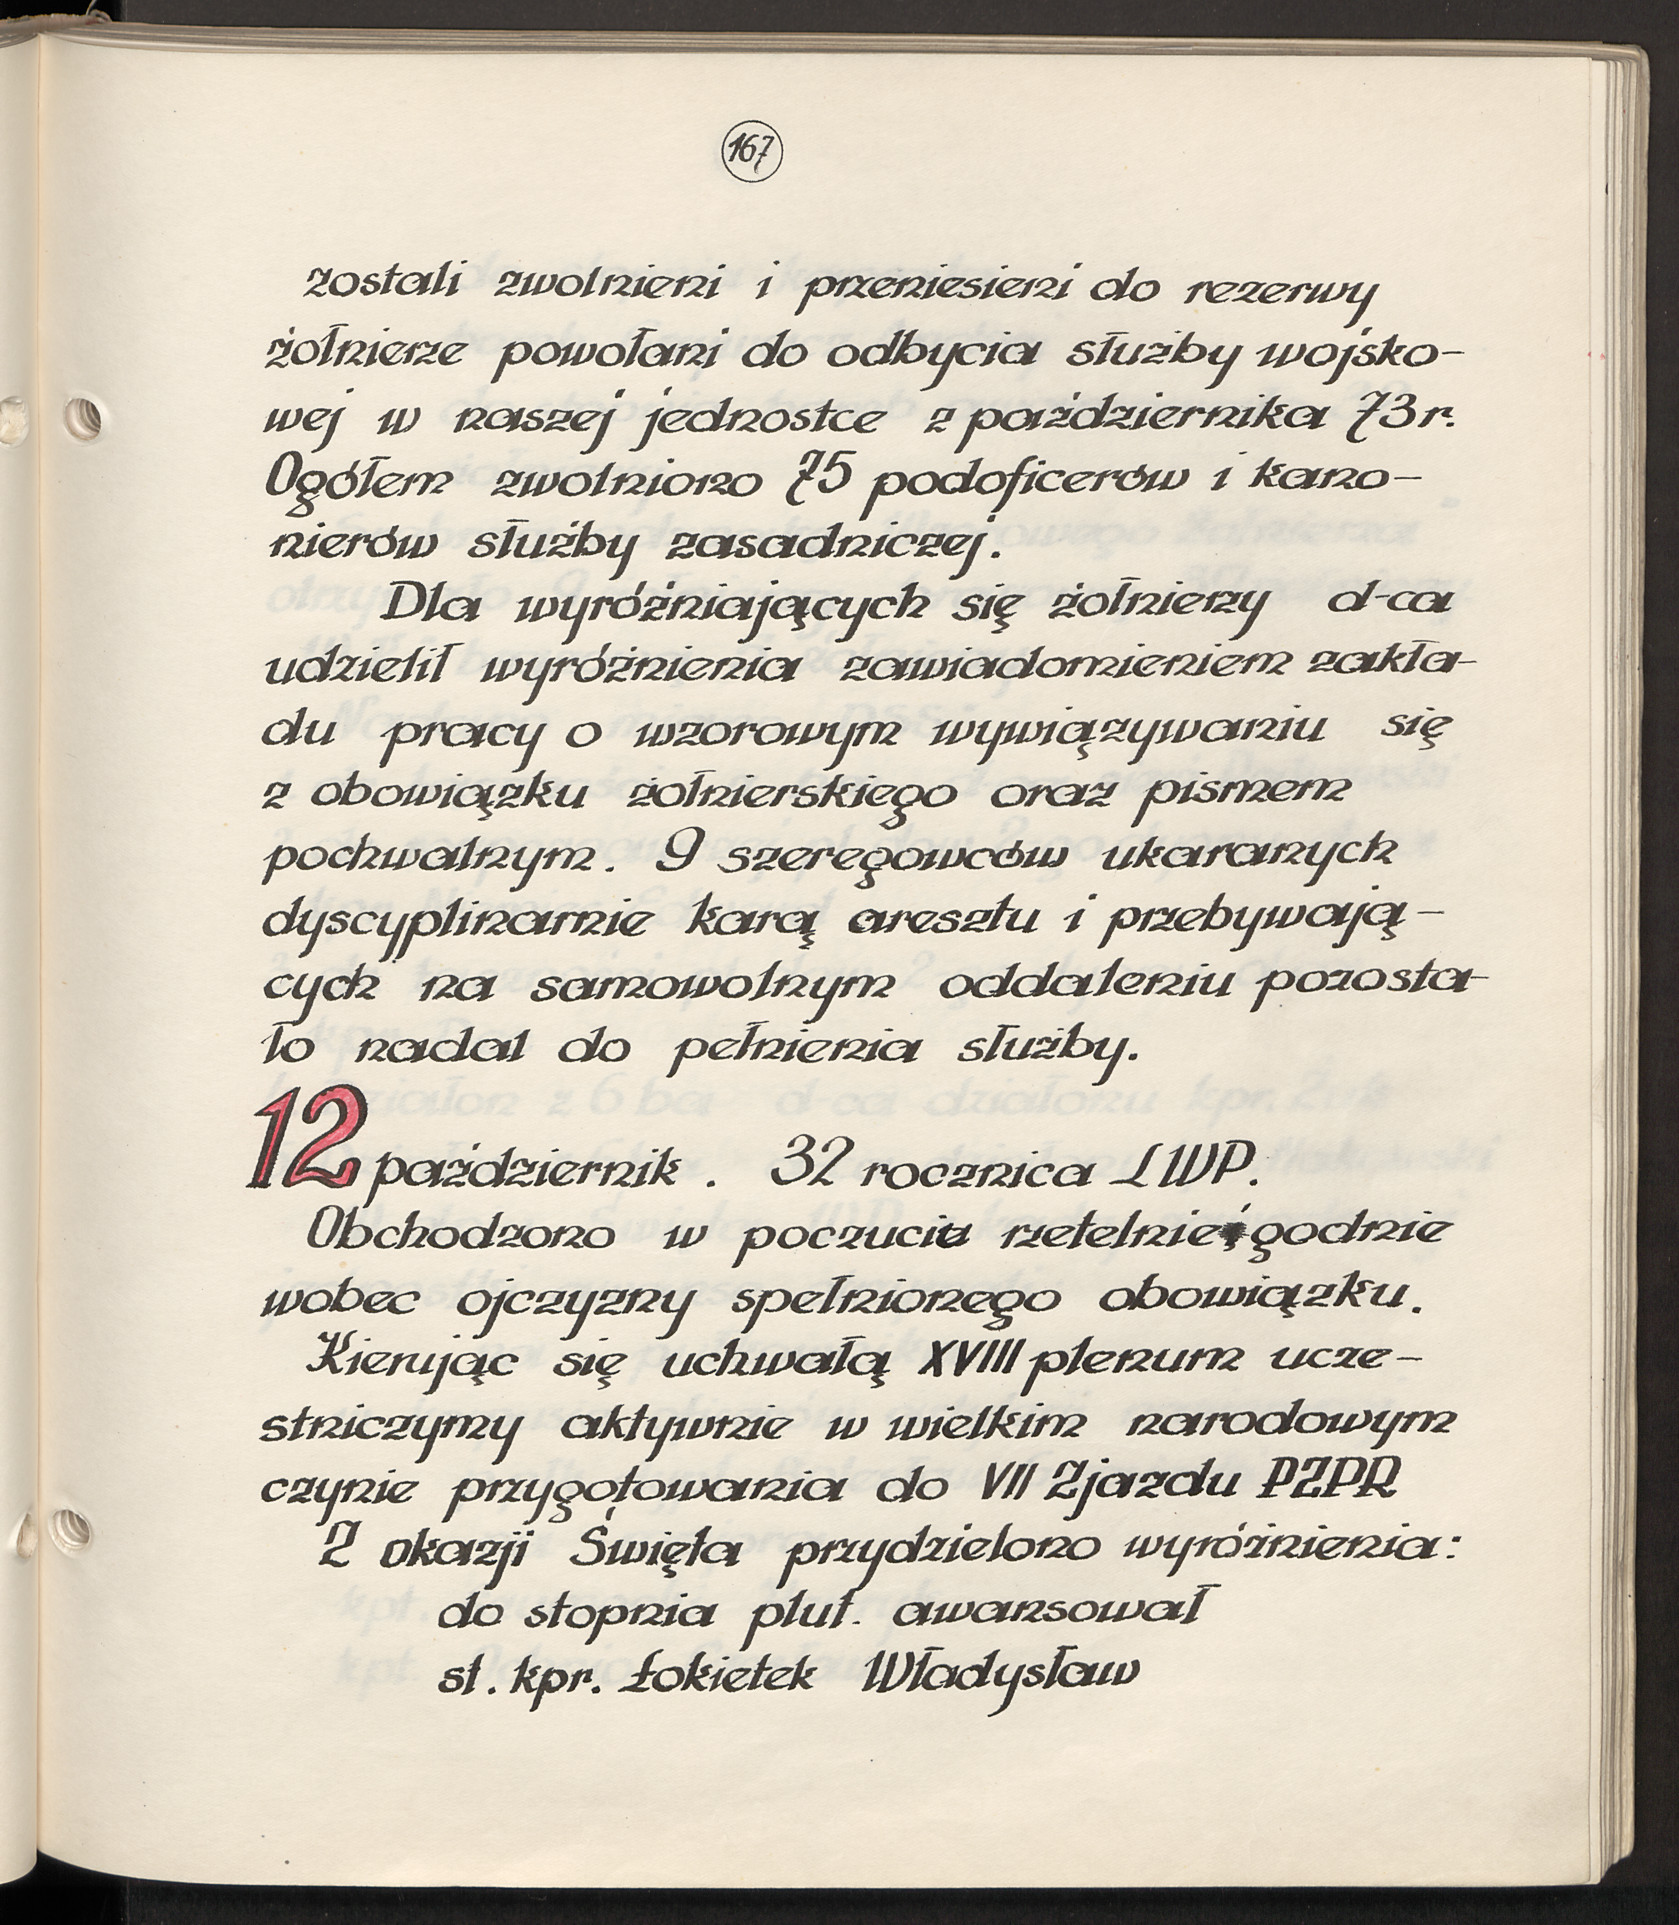 167
zostali zwolnieni i przeniesieni do rezerwy
żołnierze powołani do odbycia służby wojsko-
wej w naszej jednostce z października 73 r.
Ogółem zwolniono 75 podoficerów i kano-
nierów służby zasadniczej.
Dla wyróżniających się żołnierzy d-ca
udzielił wyróżnienia zawiadomieniem zakła-
du pracy o wzorowym wywiązywaniu się
z obowiązku żołnierskiego oraz pismem
pochwalnym. 9 szeregowców ukaranych
dyscyplinarnie karą aresztu i przebywają-
cych na samowolnym oddaleniu pozosta-
ło nadal do pełnienia służby.
12 październik. 32 rocznica LWP.
Obchodzono w poczuciu rzetelnie i godnie
wobec ojczyzny spełnionego obowiązku.
Kierując się uchwałą XVIII plenum ucze-
stniczymy aktywnie w wielkim narodowym
czynie przygotowania do VII Zjazdu PZPR
Z okazji Święta przydzielono wyróżnienia:
do stopnia plut. awansował
st. kpr. Łokietek Władysław